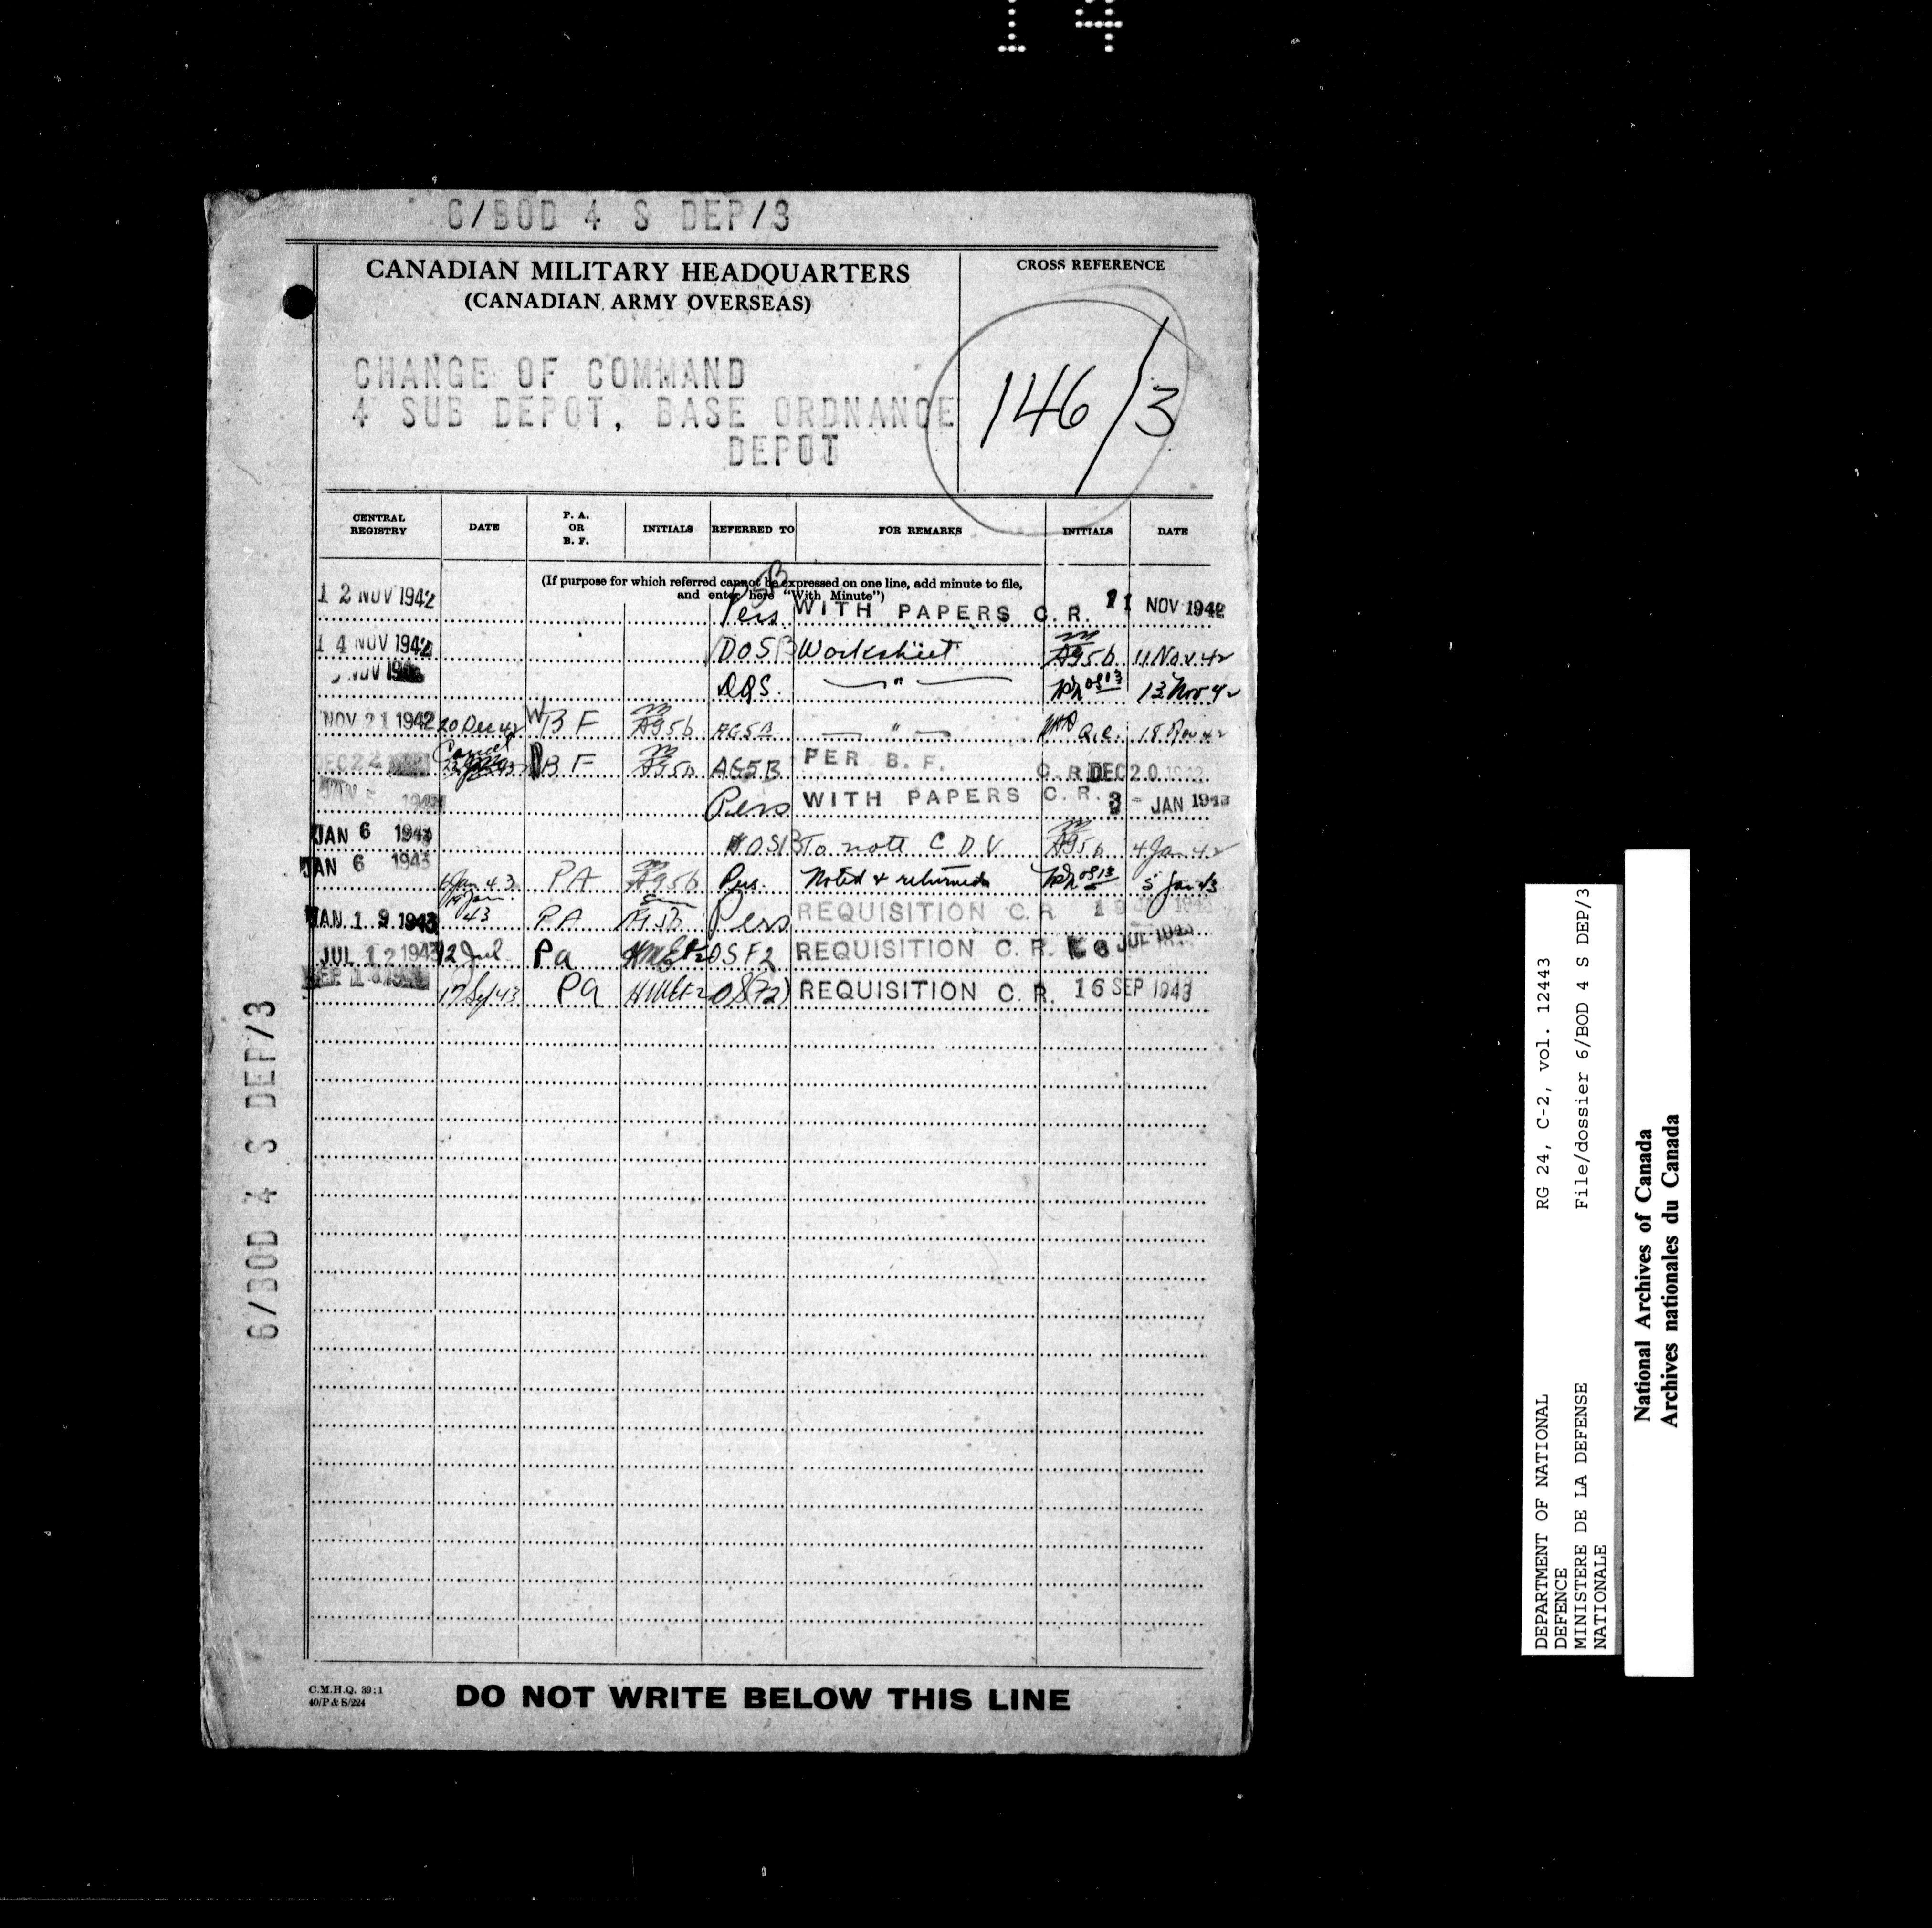 14
6/BOD 4 S DEP/3
CANADIAN MILITARY HEADQUARTERS
(CANADIAN ARMY OVERSEAS)
CROSS REFERENCE
CHANGE OF COMMAND
4 SUB DEPOT, BASE ORDNANCE
DEPOT
146/3
CENTRAL REGISTRY DATE P. A. OR B. F. INITIALS REFERRED TO FOR REMARKS INITIALS DATE
(If purpose for which referred cannot be expressed on one line, add minute to file,
and enter here "With Minute")
12 NOV 1942 Pers WITH PAPERS C. R. 11 NOV 1942
14 NOV 1942 DOS B Worksheet AG5b 11 Nov. 42
NOV DOS. " 13 Nov 42
NOV 21 1942 20 Dec 42 BF AG5b AG5B " 18 Nov 42
DEC 22 Cancel BF AG5b AG5B PER B. F. C. R. DEC 20 1942
JAN 5 1943 Pers WITH PAPERS C. R. 3 - JAN 1943
JAN 6 1943 To note C D V AG5b 4 Jan 42
JAN 6 1943 6 Jan 43 PA AG5b Pers. Noted & returned 5 Jan 43
JAN 19 1943 19 Jan. 43 PA AG5b Pers REQUISITION C. R. 19
JUL 12 1943 12 Jul Pa OSF2 REQUISITION C. R. JUL 1943
SEP 17 Sep 43 Pa OS(F2) REQUISITION C. R. 16 SEP 1943
6/BOD 4 S DEP/3
C.M.H.Q. 39:1
40/P & S/224
DO NOT WRITE BELOW THIS LINE
DEPARTMENT OF NATIONAL
DEFENCE
MINISTERE DE LA DEFENSE
NATIONALE
RG 24, C-2, vol. 12443
File/dossier 6/BOD 4 S DEP/3
National Archives of Canada
Archives nationales du Canada